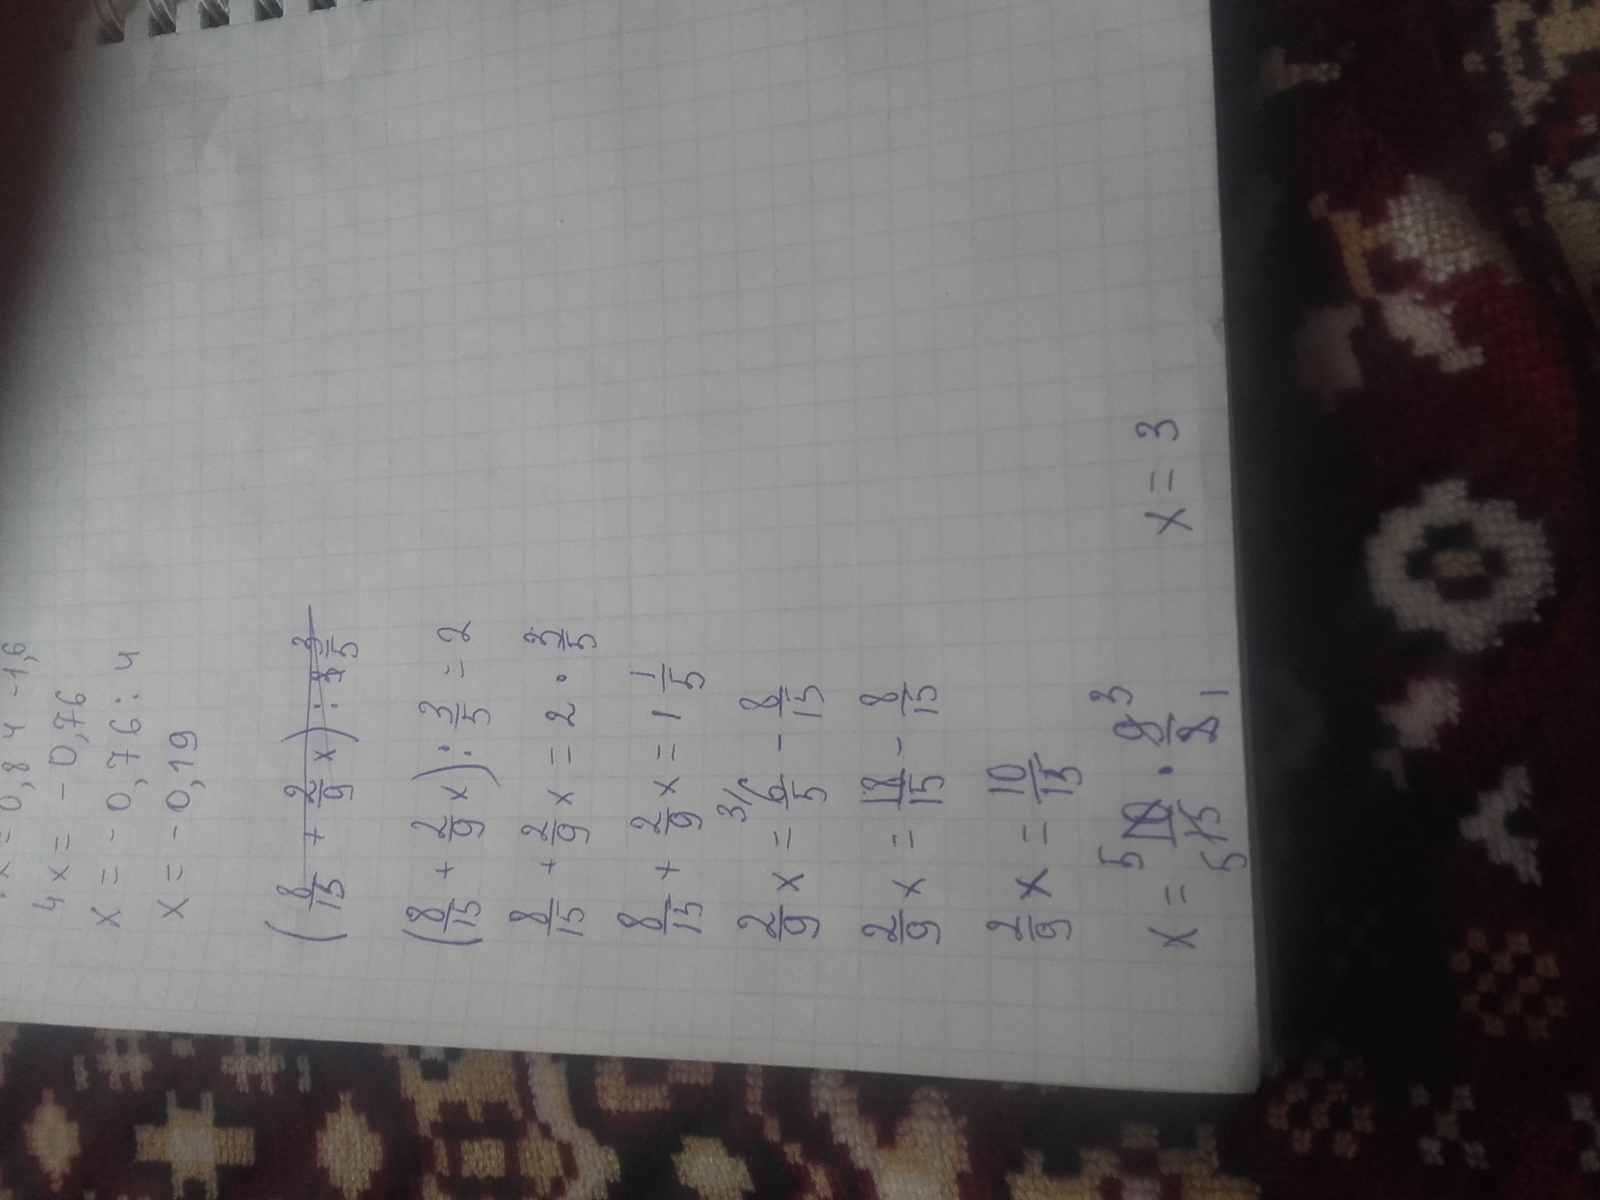 x = 0,84 - 1,6
4x = - 0,76
x = - 0,76 : 4
x = - 0,19
(8/15 + 2/9 x) : 3/5
(8/15 + 2/9 x) : 3/5 = 2
8/15 + 2/9 x = 2 · 3/5
8/15 + 2/9 x = 1 1/5
2/9 x = 3/ 6/5 - 8/15
2/9 x = 18/15 - 8/15
2/9 x = 10/15
x = 5 10/15 5 · 9 3/2 1 x = 3